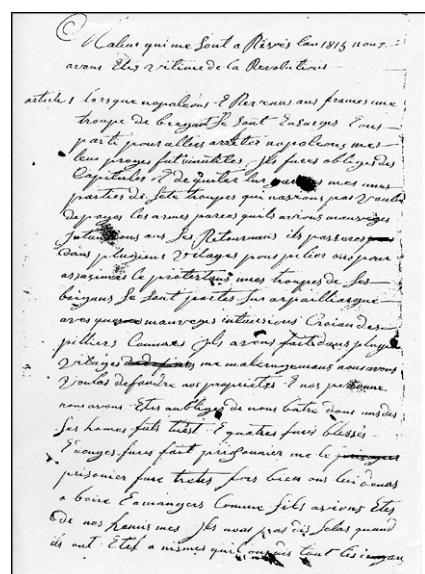 Maleur qui me sont arrivés lan 1815 nous
avons Etes vitime de la Revolutions
article 1 Lorsque napoleons E Revenus ans frances une
troupe de brigant se sont Ensorges Tous
parti pour alleer arreter napoleons mes
leur proges fut inutiles, jls fures obliges des
Capitules E de quiter lur mes unes
parties de sete troupes qui nasrons pas voulus
de poges les armes parces quils avions mauveges
Intansions ans ses Retournans ils passeres
dans plusieur vilages pour pilier ans pour
assasiner le protestans mes troupes de ses
brigans se sont portes sur arpailliargue
aves mauveges intansions Croian des
pilliers Comme jls avons faits dans plugeur
vilages me malerugemans nous avons
voulus defandre nos proprietes E nos personne
nous avons Etes aubliges de nous batre dans uns des
ses homes futs tues E quatres fures blesses
E onges fures fait prisounier me le
prisonier fure tretes fors bien ons lui donas
a boire E a mangers Comme sils avions Etes
de nos hamis mes jls nous pas dis selas quand
ils ont Etes a nismes quil ons dis tout les